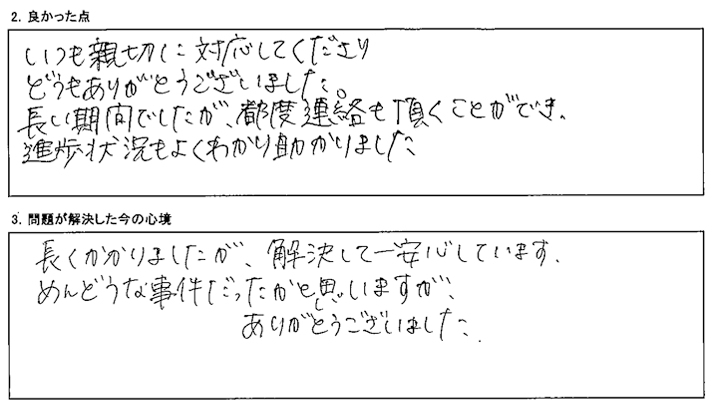 2. 良かった点
いつも親切に対応してくださり
どうもありがとうございました。
長い期間でしたが、都度連絡も頂くことができ、
進歩状況もよくわかり助かりました
3. 問題が解決した今の心境
長くかかりましたが、解決して一安心しています.
めんどうな事件だったかと思いますが、
ありがとうございました.